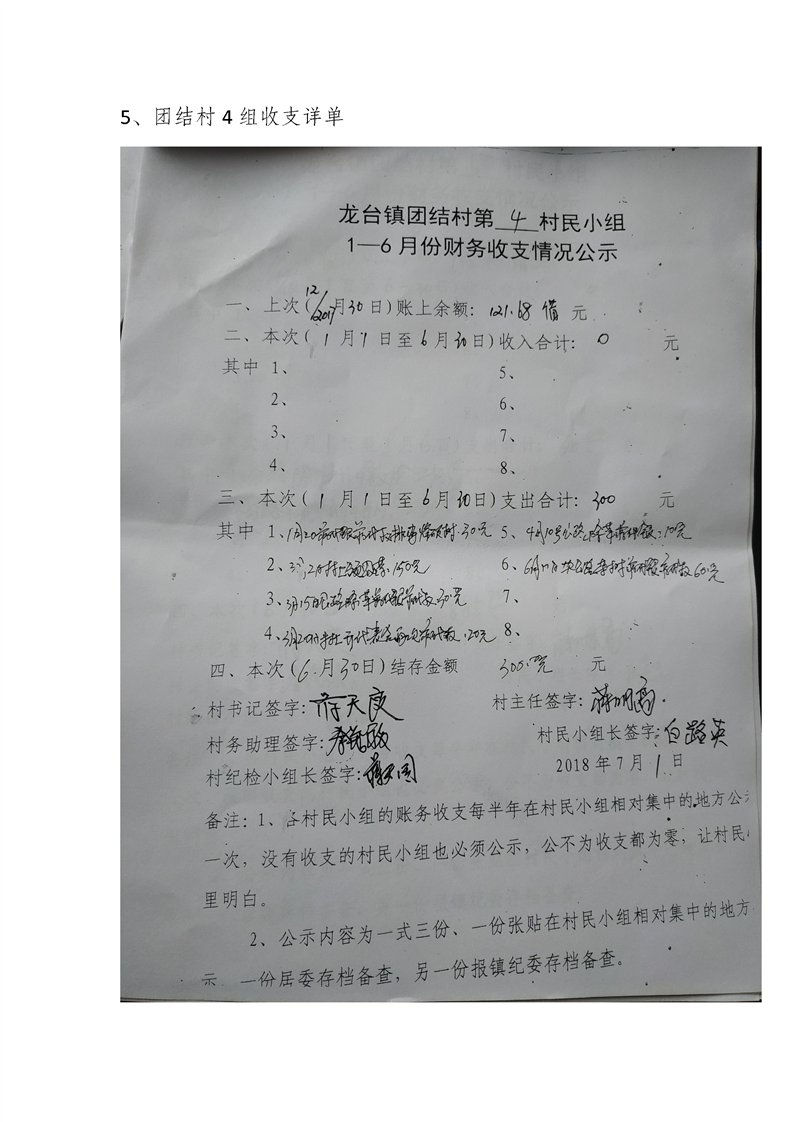 5、团结村 4 组收支详单
龙台镇团结村第 4 村民小组
1—6 月份财务收支情况公示
一、上次(2017 12月30日)账上余额: 121.68 借 元
二、本次( 1 月 1 日至 6 月30日)收入合计: 0 元
其中 1、 5、
2、 6、
3、 7、
4、 8、
三、本次( 1 月 1 日至 6 月30日)支出合计: 300 元
其中 1、1月20 30元 5、4月10号公路 10元
2、 150元 6、6月 60元
3、3月15日 30元 7、
4、3月20 代表 20元 8、
四、本次(6月30日)结存金额 300 元 元
村书记签字: 蒋天度 村主任签字: 蒋明高
村务助理签字: 村民小组长签字: 白路英
村纪检小组长签字: 2018 年 7 月 1 日
备注: 1、各村民小组的账务收支每半年在村民小组相对集中的地方公
一次，没有收支的村民小组也必须公示，公不为收支都为零，让村民
里明白。
2、公示内容为一式三份、一份张贴在村民小组相对集中的地方
示 一份居委存档备查，另一份报镇纪委存档备查。